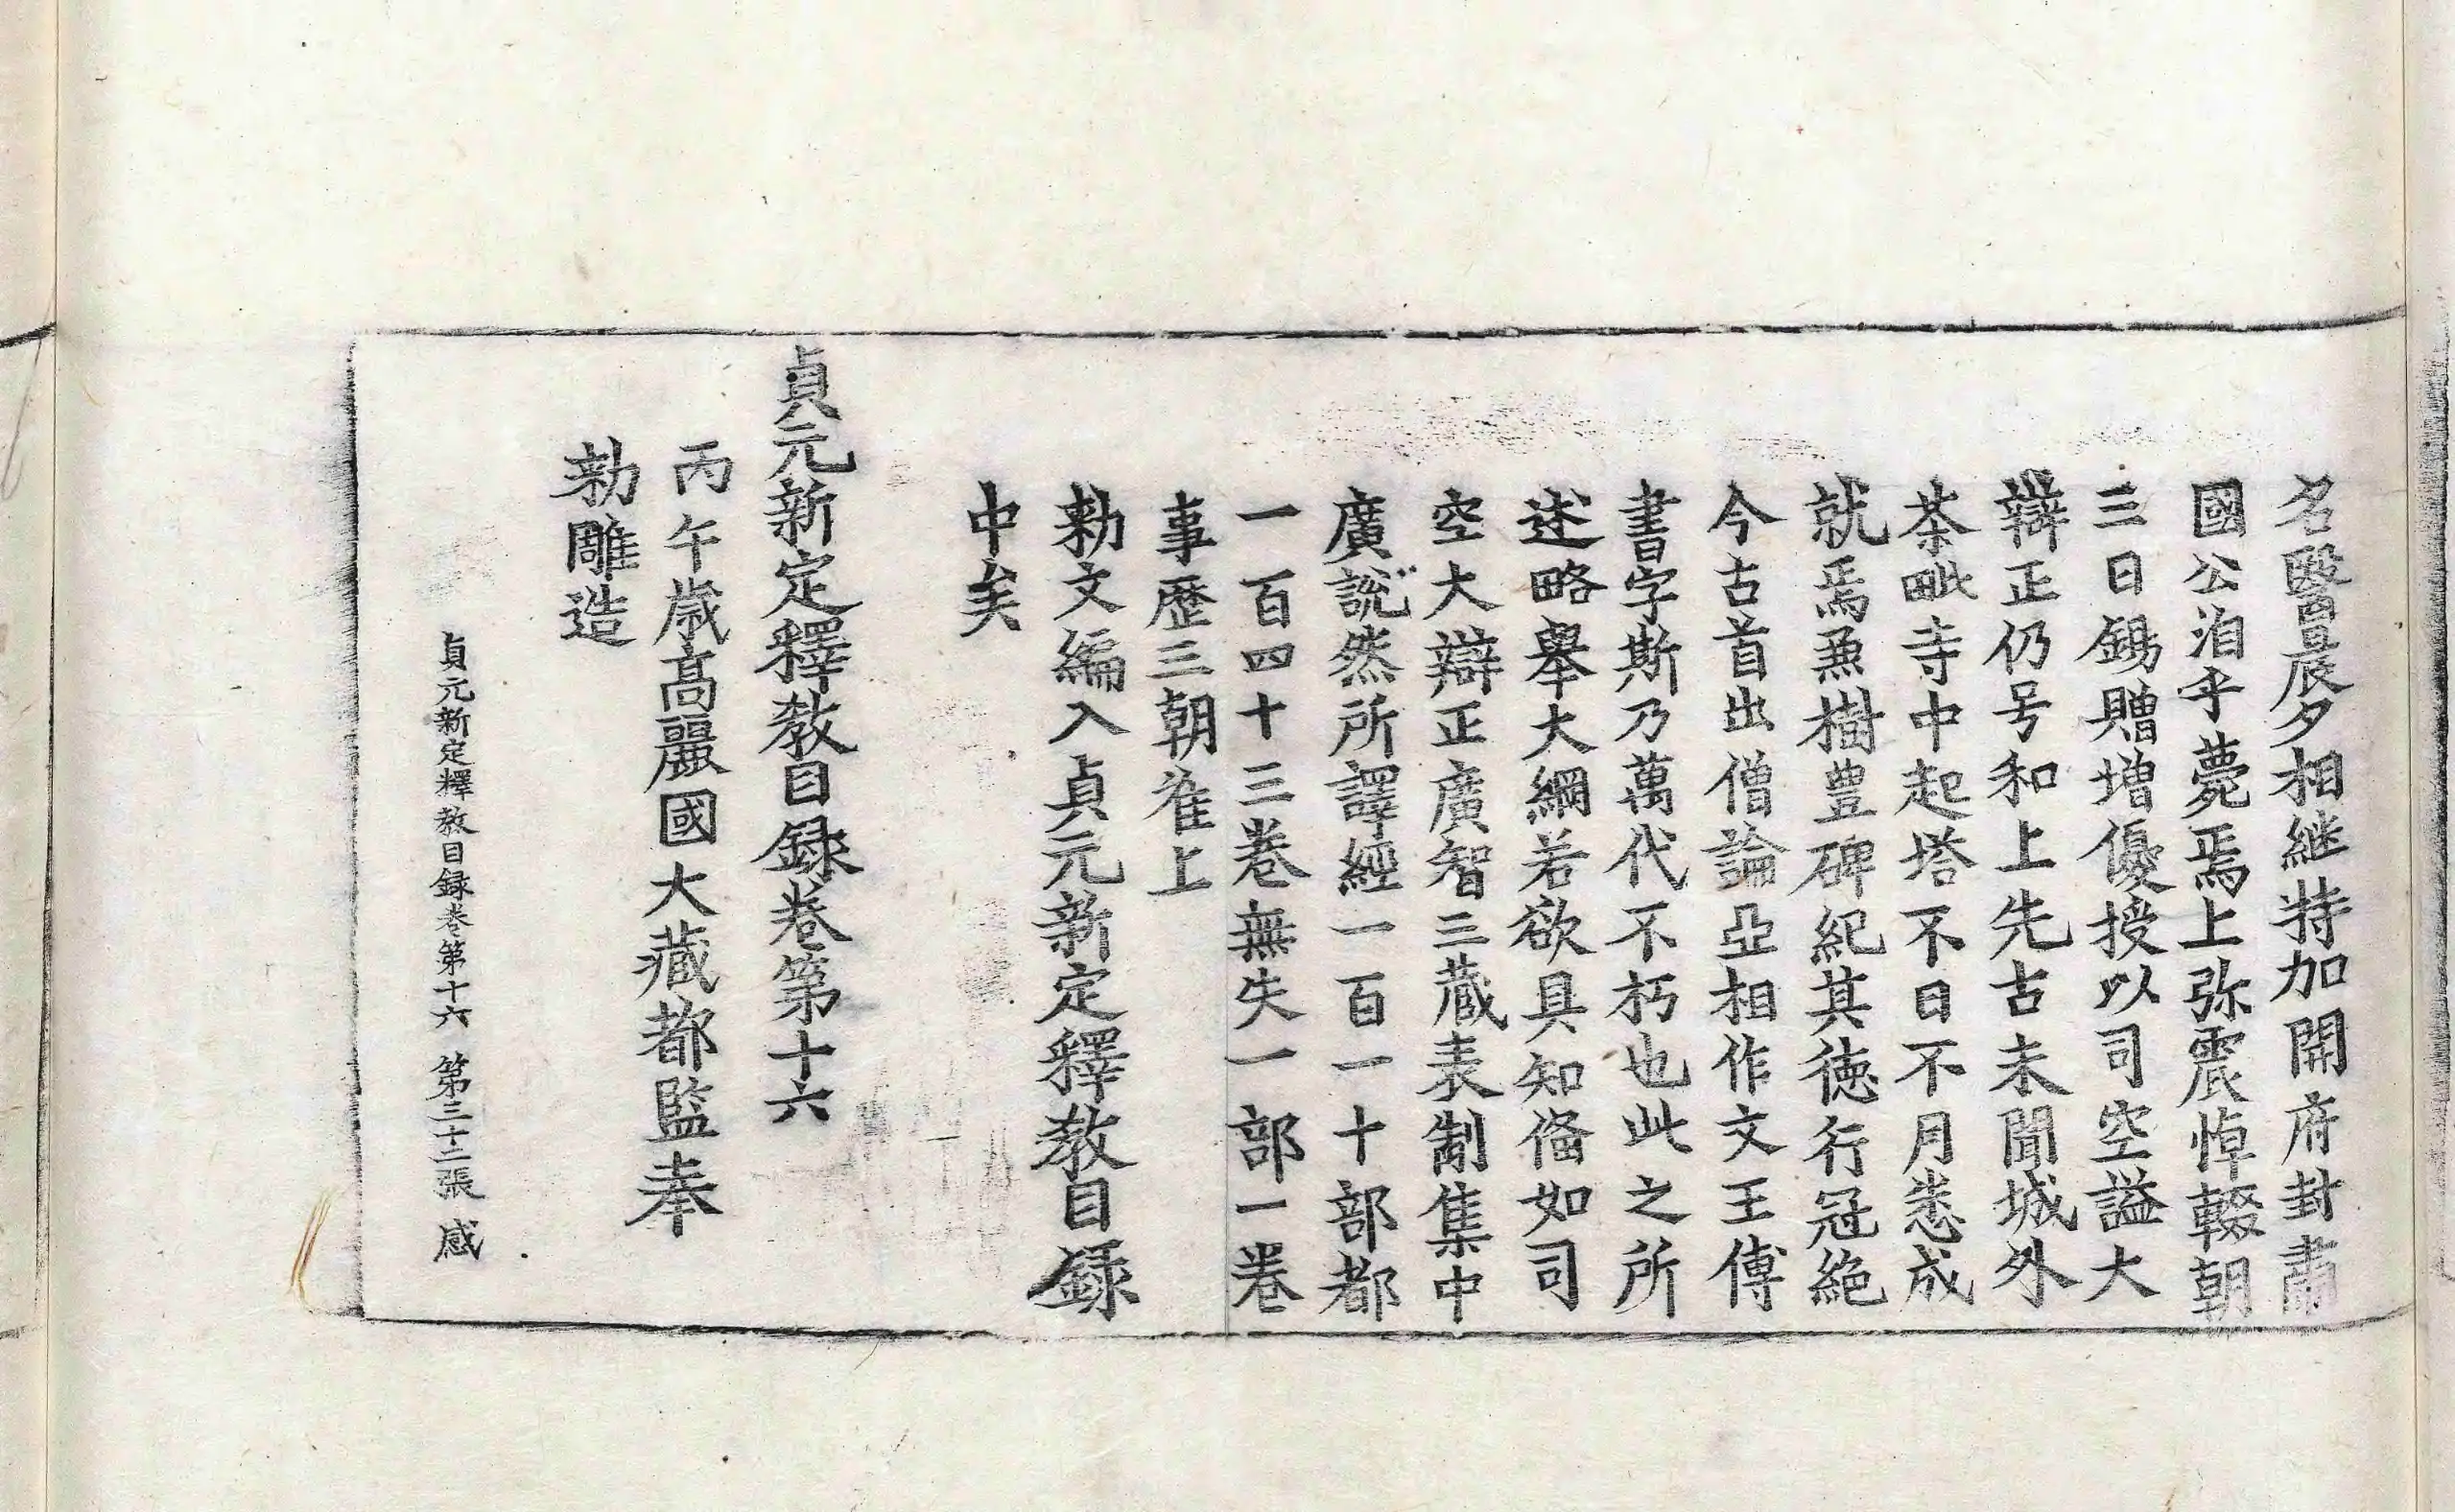 名醫晨夕相継特加開府封肅
國公洎乎薨焉上弥震悼輟朝
三日錫贈增優授以司空謚大
辯正仍号和上先古未聞城外
茶毗寺中起塔不日不月悉成
就焉兼樹豊碑紀其徳行冠絶
今古首出僧論亞相作文王傅
書字斯乃萬代不朽也此之所
述略舉大綱若欲具知俻如司
空大辯正廣智三藏表制集中
廣說然所譯經一百一十部都
一百四十三卷無失一部一卷
事歷三朝准上
勑文編入貞元新定釋教目録
中矣
貞元新定釋教目録卷第十六
丙午歳髙麗國大藏都監奉
勑雕造
貞元新定釋教目録卷第十六 第三十二張 感